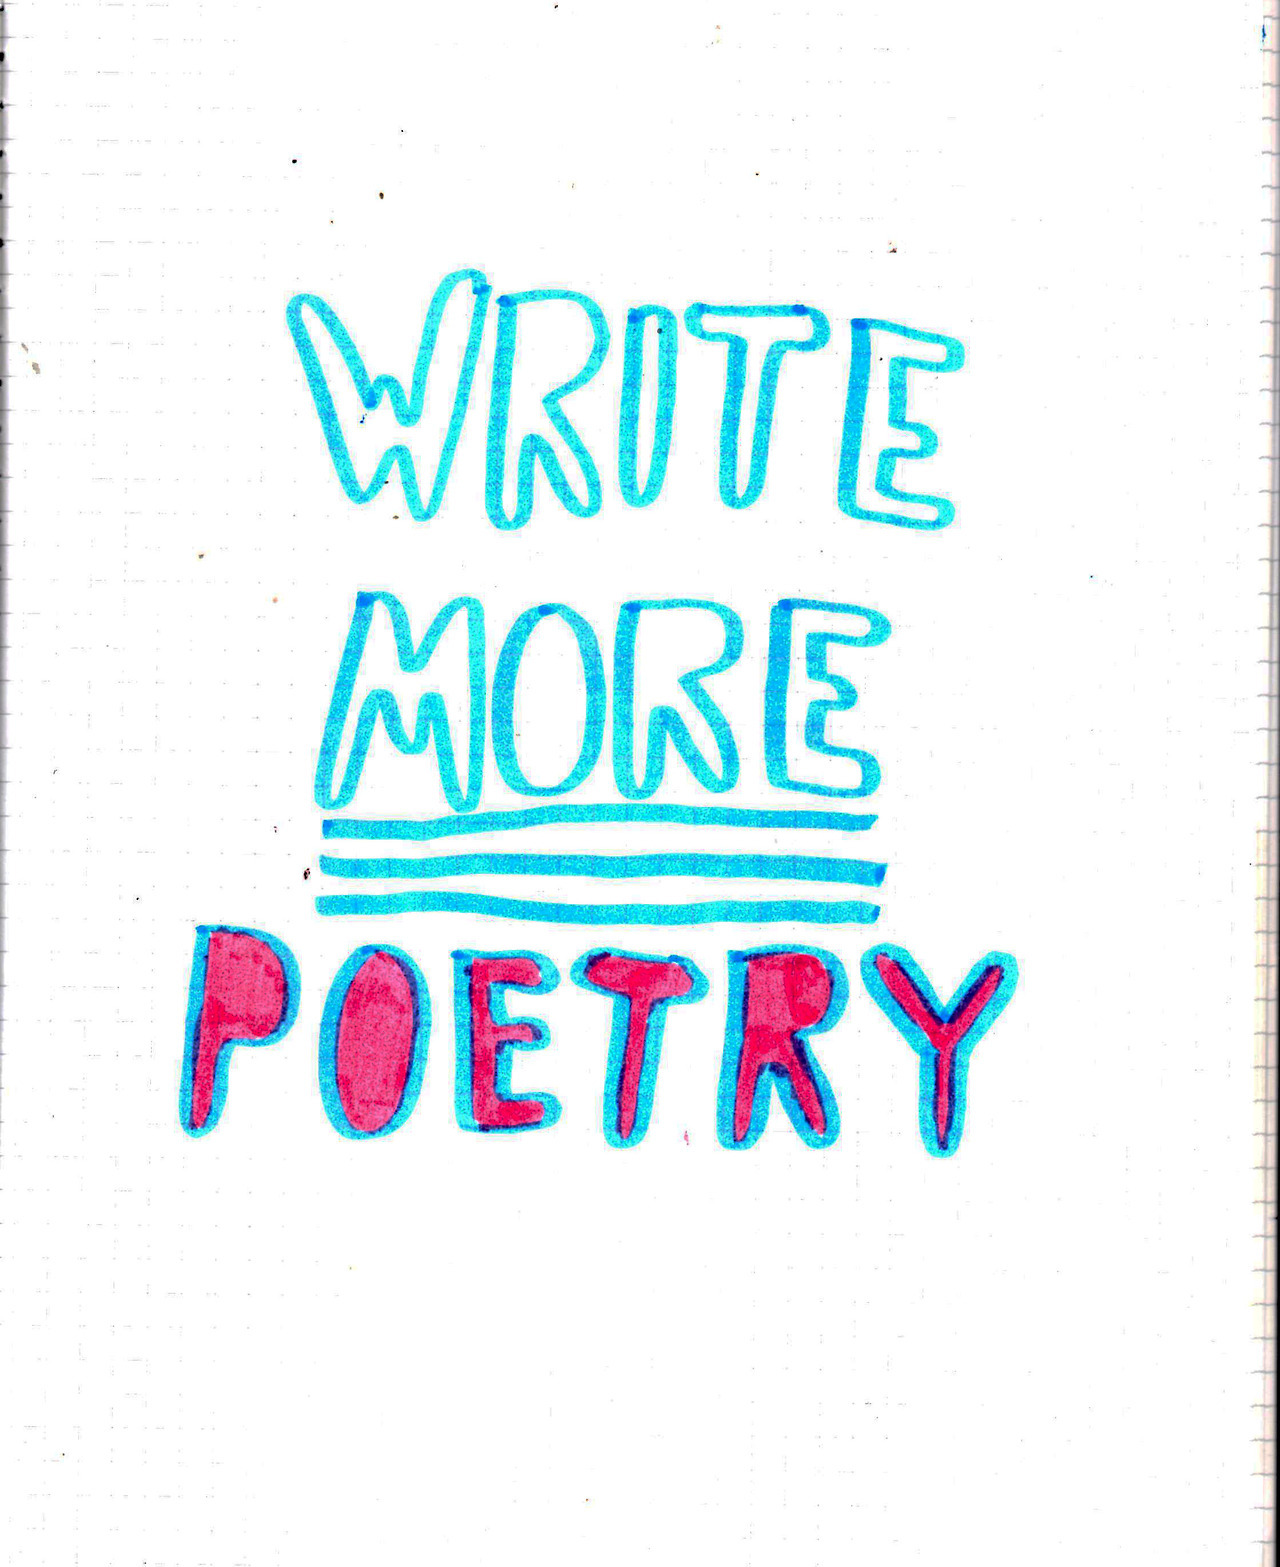 WRITE
MORE
POETRY